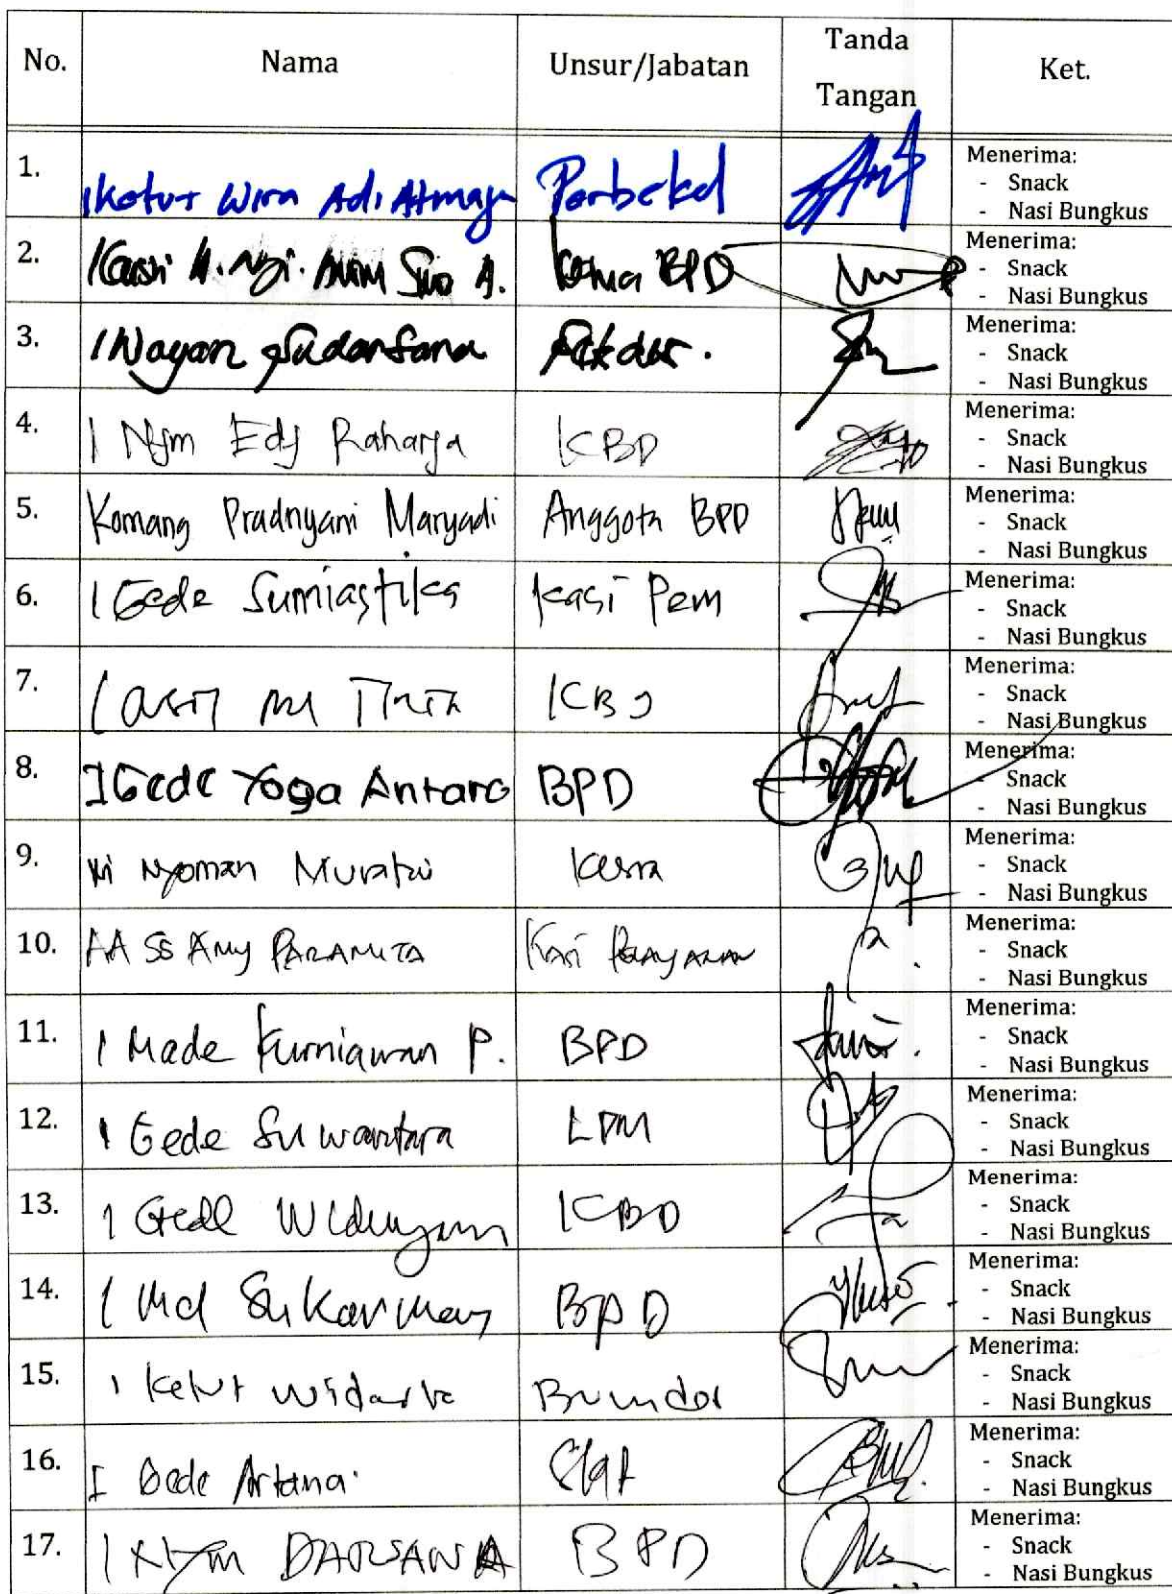 No. Nama Unsur/Jabatan Tanda Tangan Ket.
1. I Ketut Wira Adi Atmaja Perbekel Menerima:
- Snack
- Nasi Bungkus
2. I Gusti Ketua BPD Menerima:
- Snack
- Nasi Bungkus
3. I Wayan Sudarsana Sekdes. Menerima:
- Snack
- Nasi Bungkus
4. I Nym Edy Raharja KBD Menerima:
- Snack
- Nasi Bungkus
5. Komang Pradnyani Maryadi Anggota BPD Menerima:
- Snack
- Nasi Bungkus
6. I Gede Sumiastika Kasi Pem Menerima:
- Snack
- Nasi Bungkus
7. I Menerima:
- Snack
- Nasi Bungkus
8. I Gede Yoga Antara BPD Menerima:
- Snack
- Nasi Bungkus
9. Ni Nyoman Muratni Kesra Menerima:
- Snack
- Nasi Bungkus
10. AA SS Amy PARAMITA Kasi Menerima:
- Snack
- Nasi Bungkus
11. I Made Kurniawan P. BPD Menerima:
- Snack
- Nasi Bungkus
12. I Gede Suwantara LPM Menerima:
- Snack
- Nasi Bungkus
13. I Gede KBD Menerima:
- Snack
- Nasi Bungkus
14. I Md Sukarman BPD Menerima:
- Snack
- Nasi Bungkus
15. I Ketut Widarta Menerima:
- Snack
- Nasi Bungkus
16. I Gede Artana. Staf Menerima:
- Snack
- Nasi Bungkus
17. I Nym DARSANA BPD Menerima:
- Snack
- Nasi Bungkus